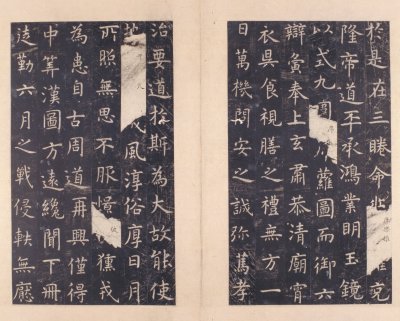 於是在三睠命克
隆帝道丕承鴻業明玉鏡
以式九蘿圖而御六
辯寅奉上玄肅恭清廟宵
衣昃食視膳之禮無方一
日萬機問安之誠彌篤孝
治要道於斯為大故能使
風淳俗厚日月
所照無思不服憬獫戎
為患自古周道再興僅得
中筭漢圖方遠纔聞下冊
徒勤六月之戰侵軼無厭